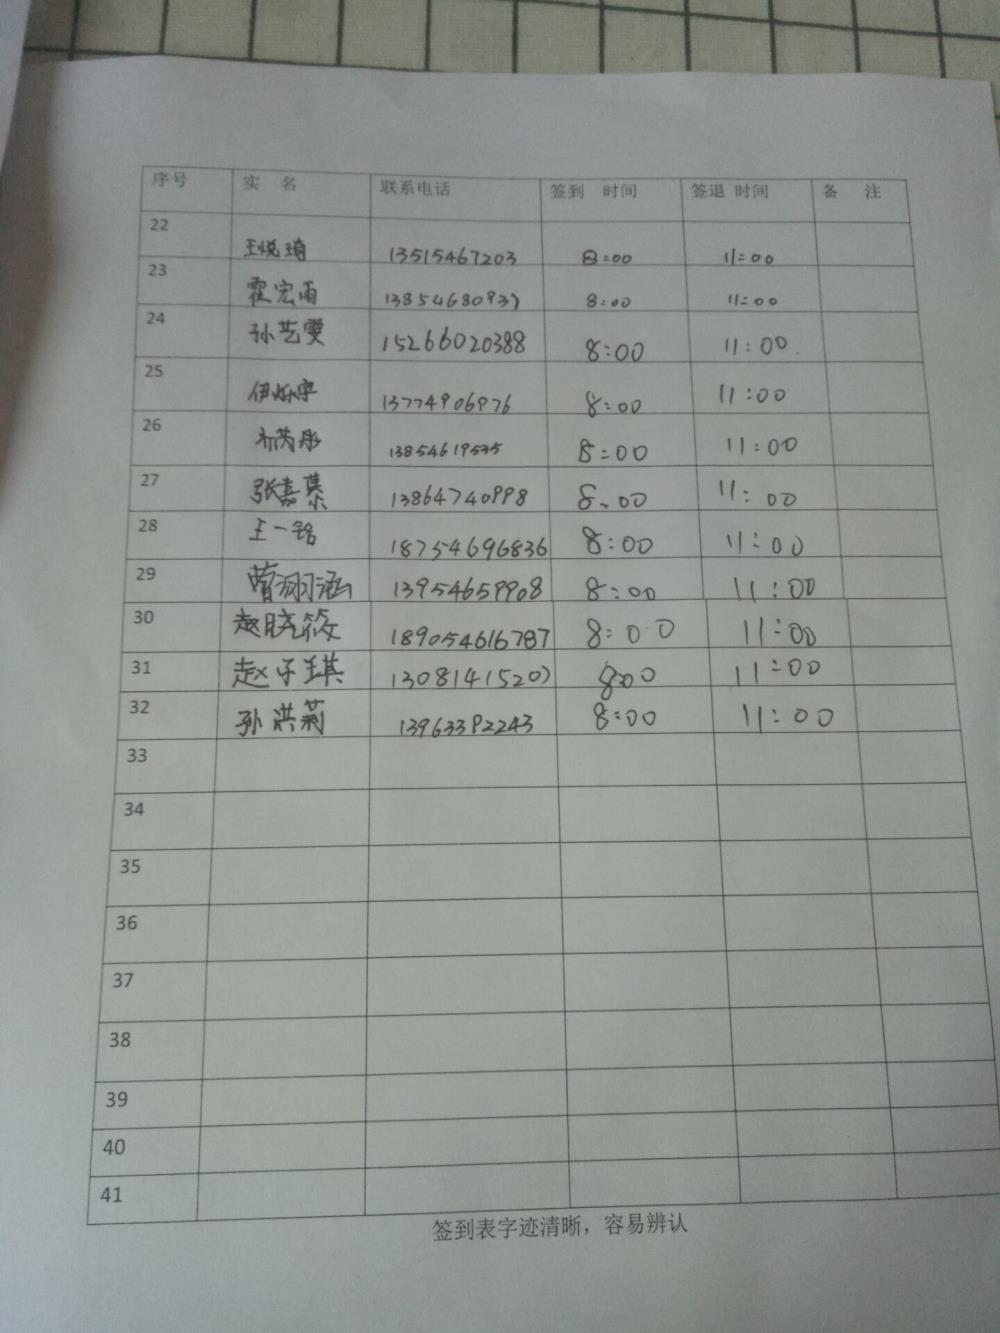 序号 实 名 联系电话 签到 时间 签退 时间 备 注
22 王悦琦 13515467203 8:00 11:00
23 霍宏雨 13854680937 8:00 11:00
24 孙艺雯 15266020388 8:00 11:00
25 13774906976 8:00 11:00
26 8:00 11:00
27 张嘉慕 13864740998 8:00 11:00
28 王一铭 18754696836 8:00 11:00
29 曹溯涵 13954659908 8:00 11:00
30 赵晓筱 189054616787 8:00 11:00
31 赵子琪 13081415207 8:00 11:00
32 孙洪莉 13963392243 8:00 11:00
33
34
35
36
37
38
39
40
41
签到表字迹清晰，容易辨认